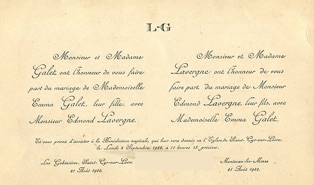 L-G
Monsieur et Madame
Galet ont l'honneur de vous faire
part du mariage de Mademoiselle
Emma Galet, leur fille, avec
Monsieur Edmond Lavergne.
Monsieur et Madame
Lavergne ont l'honneur de vous
faire part du mariage de Monsieur
Edmond Lavergne, leur fils, avec
Mademoiselle Emma Galet.
Et vous prient d'assister à la Bénédiction nuptiale, qui leur sera donnée en l'Église de Saint-Cyr-sur-Loire,
le Lundi 4 Septembre 1922, à 11 heures
Saint-Cyr-sur-Loire
Août 1922.
Montceau-les-Mines
Août 1922.